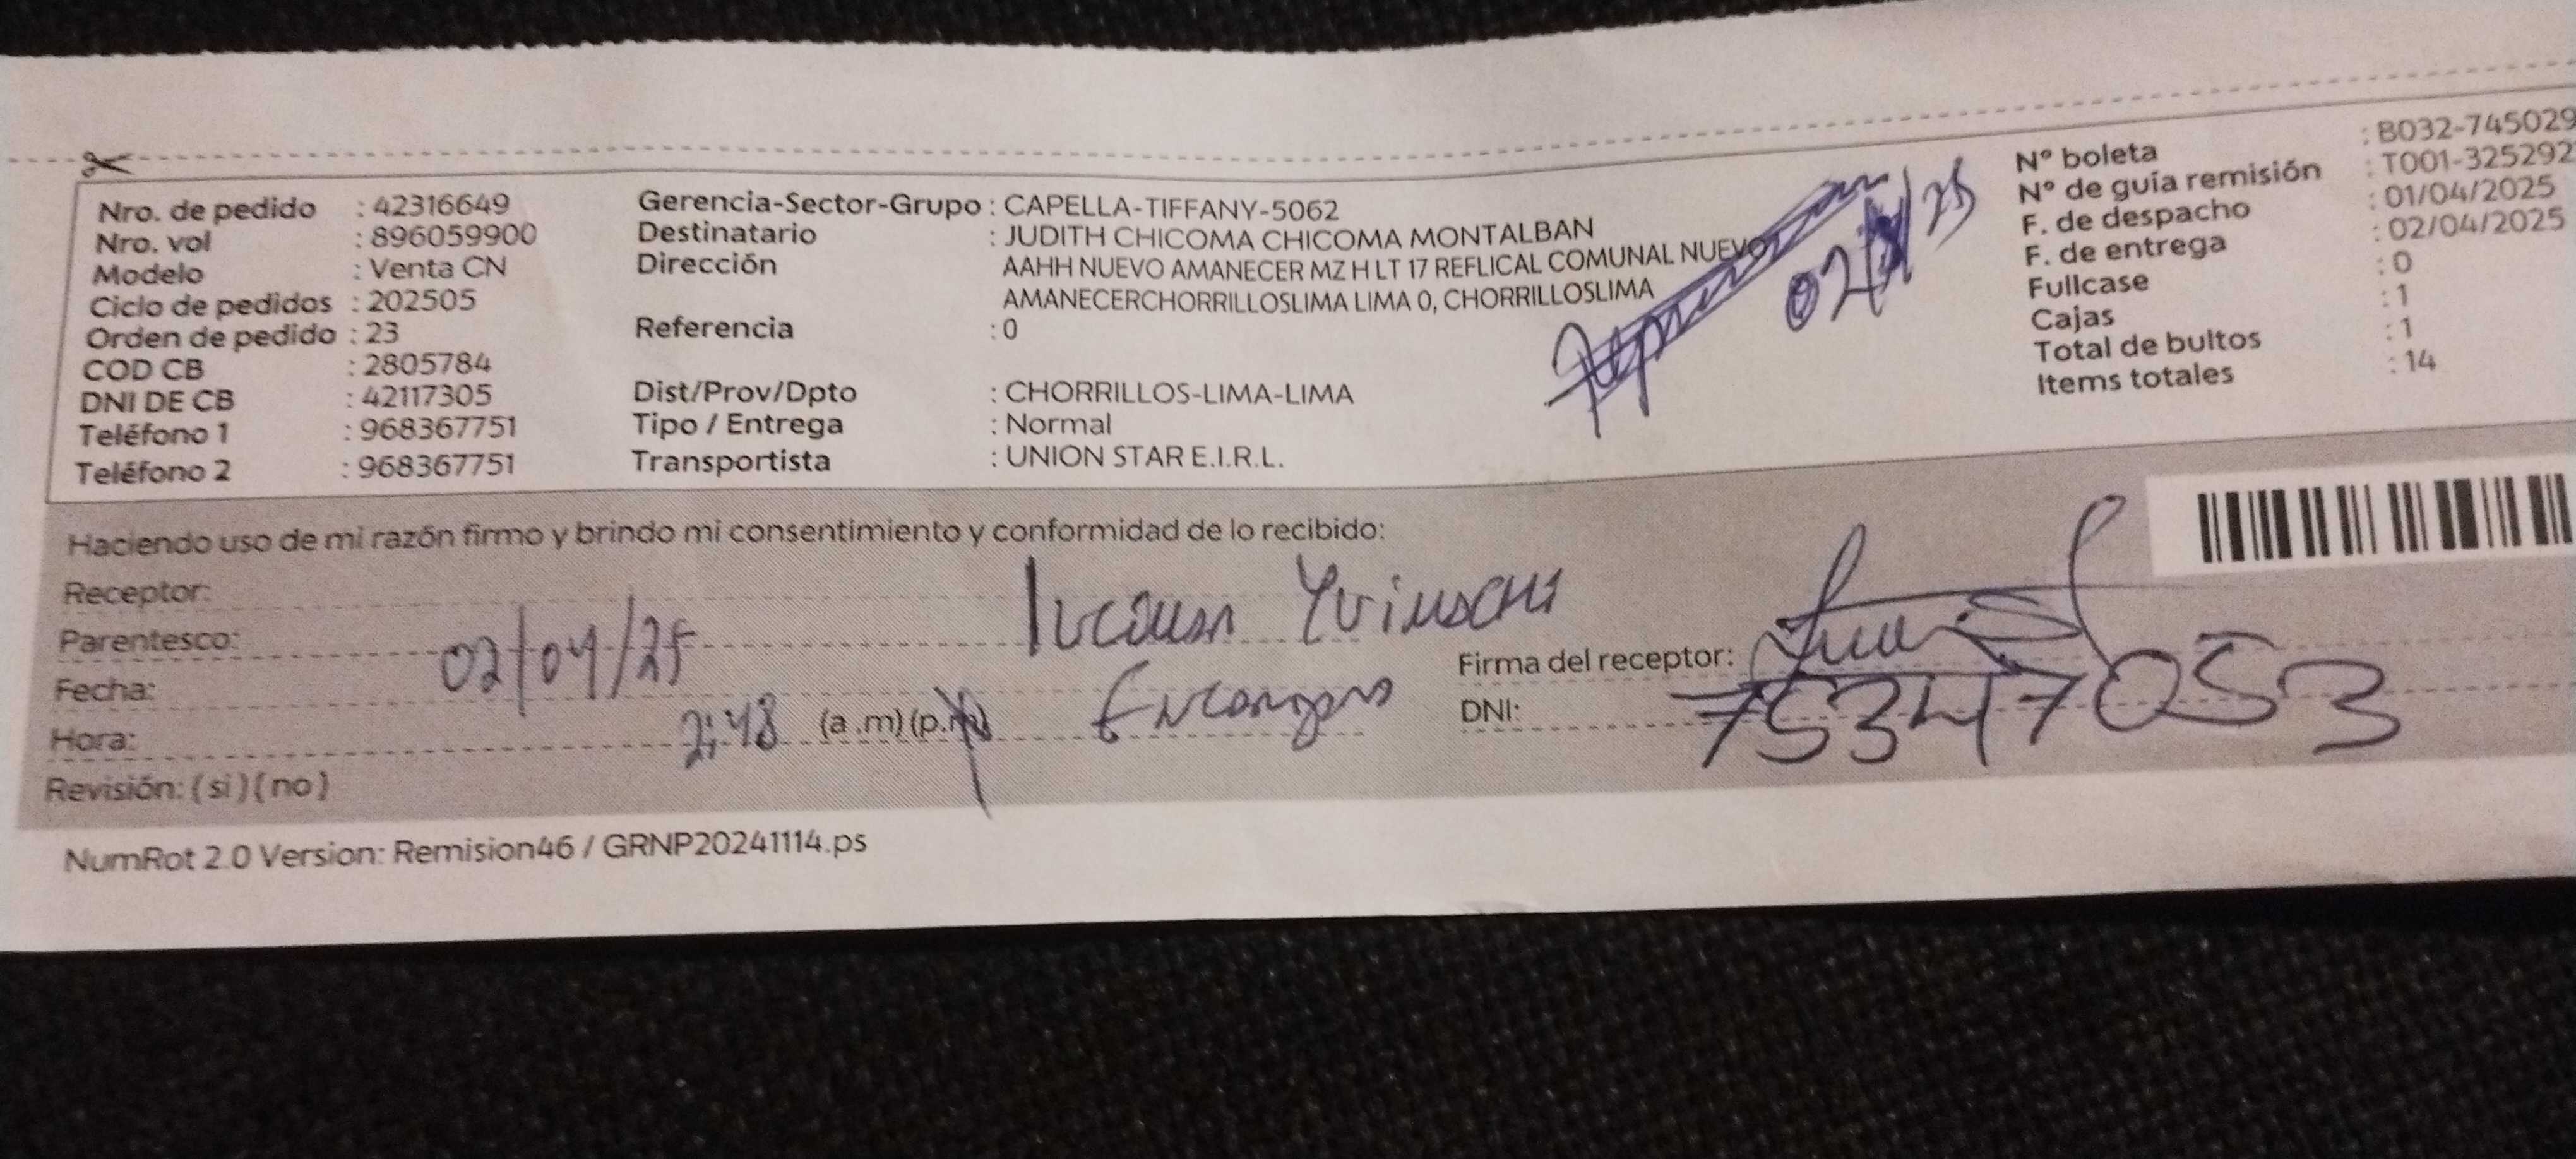 Nro. de pedido : 42316649
Nro. vol : 896059900
Modelo : Venta CN
Ciclo de pedidos : 202505
Orden de pedido : 23
COD CB : 2805784
DNI DE CB : 42117305
Teléfono 1 : 968367751
Teléfono 2 : 968367751
Gerencia-Sector-Grupo : CAPELLA-TIFFANY-5062
Destinatario : JUDITH CHICOMA CHICOMA MONTALBAN
Dirección AAHH NUEVO AMANECER MZ H LT 17 REFLICAL COMUNAL NUEVO
AMANECERCHORRILLOSLIMA LIMA 0, CHORRILLOSLIMA
Referencia : 0
Dist/Prov/Dpto : CHORRILLOS-LIMA-LIMA
Tipo / Entrega : Normal
Transportista : UNION STAR E.I.R.L.
Nº boleta : B032-745029
Nº de guía remisión : T001-325292
F. de despacho : 01/04/2025
F. de entrega : 02/04/2025
Fullcase : 0
Cajas : 1
Total de bultos : 1
Items totales : 14
Haciendo uso de mi razón firmo y brindo mi consentimiento y conformidad de lo recibido:
Receptor:
Parentesco:
Fecha: 02/04/25
Hora: 2:48 (a.m) (p.m)
Revisión: ( si ) ( no )
Firma del receptor:
DNI: 75347053
NumRot 2.0 Version: Remision46 / GRNP20241114.ps